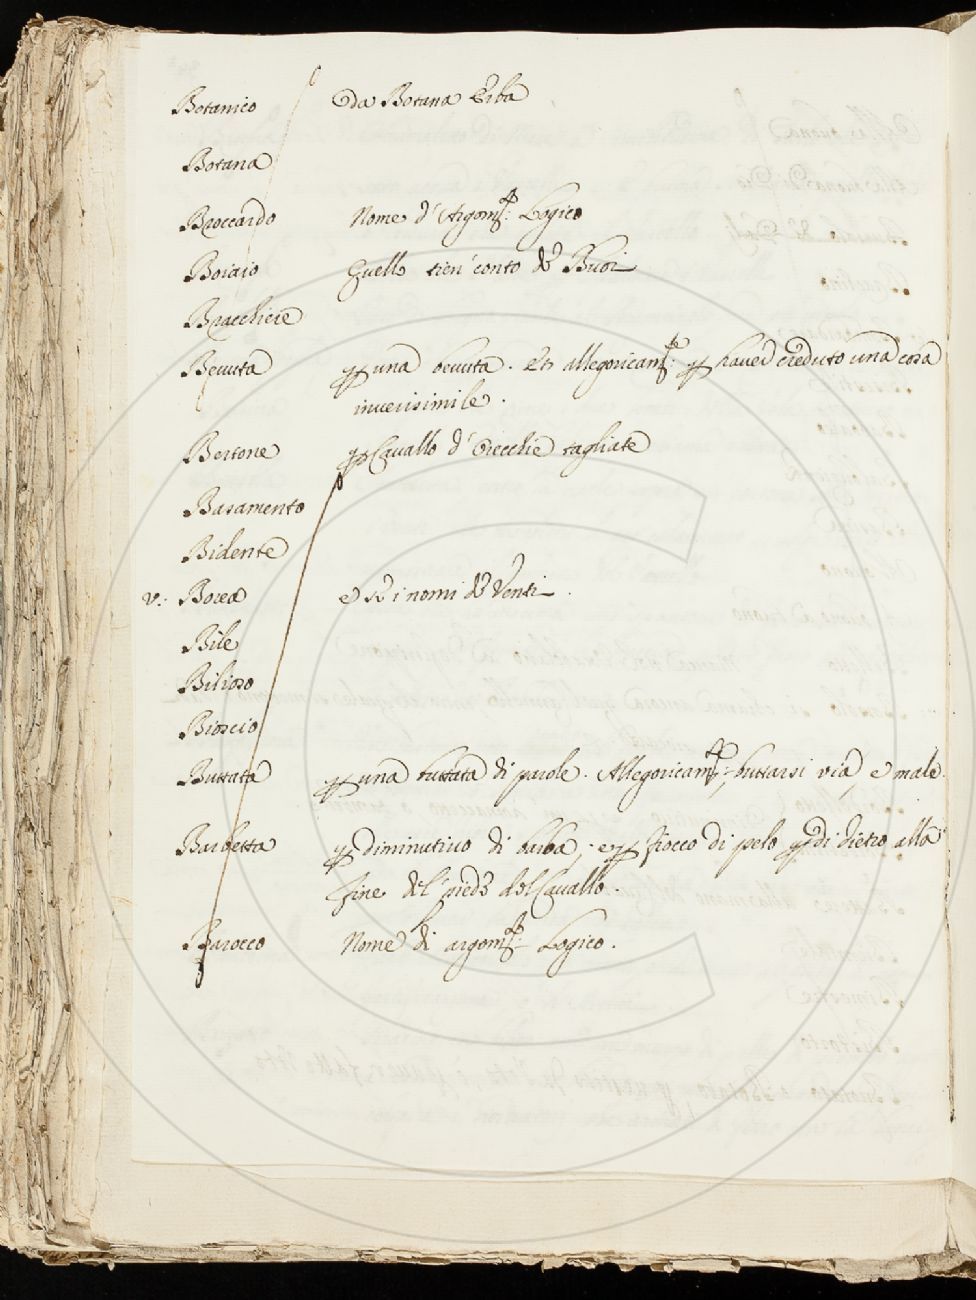 Botanico da Botana Erba
Botana
Broccardo Nome d'Argomte: Logico
Boiaio Quello tien conto de Buoi
Bracchiere
Bevuta p una bevuta. Et allegoricamte: p haver creduto una cosa
inverisimile.
Bertone p Cavallo d'Orecchie tagliate
Basamento
Bidente
v: Borea e di i nomi de Venti.
Bile
Bilioso
Bioscio
Buttata p una buttata di parole. Allegoricamte: buttarsi via, e male.
Barbetta p diminutivo di barba, e p fiocco di pelo p di dietro alla
fine del piede del Cavallo.
Barocco Nome di argomte: Logico.